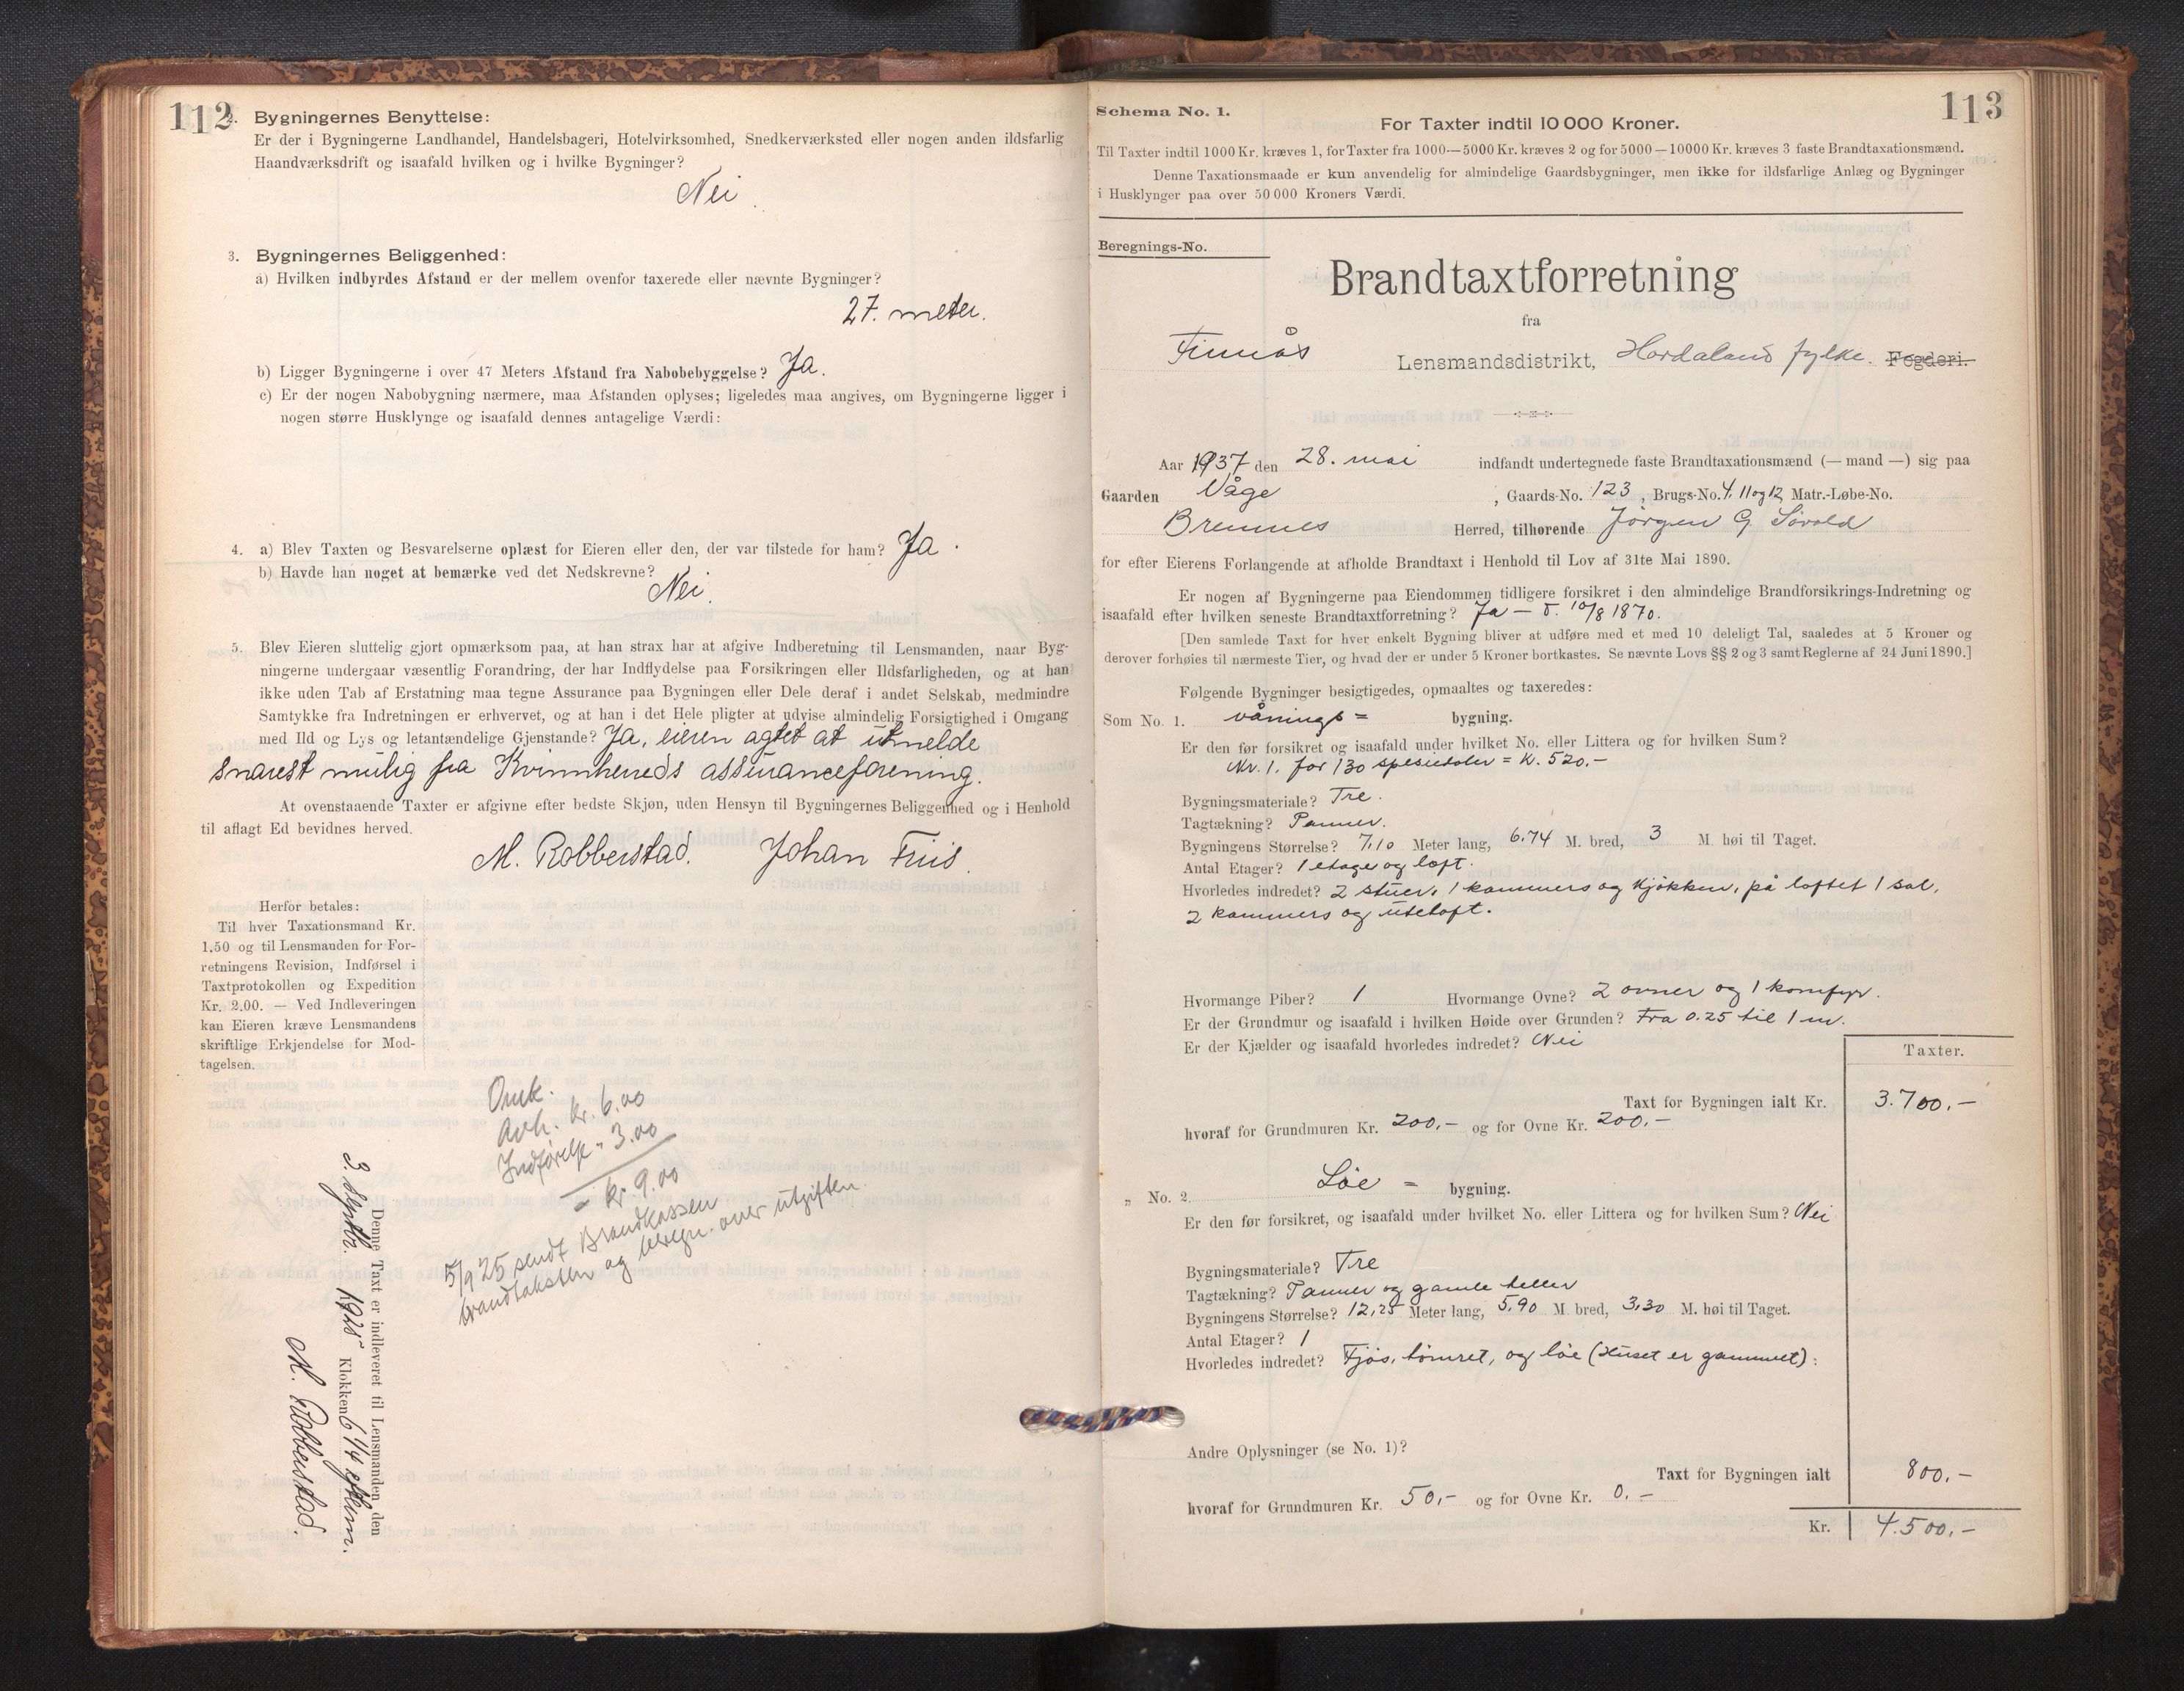 112
2. Bygningernes Benyttelse:
Er der i Bygningerne Landhandel, Handelsbageri, Hotelvirksomhed, Snedkerværksted eller nogen anden ildsfarlig
Haandværksdrift og isaafald hvilken og i hvilke Bygninger?
Nei.
3. Bygningernes Beliggenhed:
a) Hvilken indbyrdes Afstand er der mellem ovenfor taxerede eller nævnte Bygninger?
27. meter.
b) Ligger Bygningerne i over 47 Meters Afstand fra Nabobebyggelse? Ja.
c) Er der nogen Nabobygning nærmere, maa Afstanden oplyses; ligeledes maa angives, om Bygningerne ligger i
nogen større Husklynge og isaafald dennes antagelige Værdi:
4. a) Blev Taxten og Besvarelserne oplæst for Eieren eller den, der var tilstede for ham? Ja.
b) Havde han noget at bemærke ved det Nedskrevne?
Nei.
5. Blev Eieren sluttelig gjort opmærksom paa, at han strax har at afgive Indberetning til Lensmanden, naar Byg-
ningerne undergaar væsentlig Forandring, der har Indflydelse paa Forsikringen eller Ildsfarligheden, og at han
ikke uden Tab af Erstatning maa tegne Assurance paa Bygningen eller Dele deraf i andet Selskab, medmindre
Samtykke fra Indretningen er erhvervet, og at han i det Hele pligter at udvise almindelig Forsigtighed i Omgang
med Ild og Lys og letantændelige Gjenstande? Ja, eieren agtet at utmelde
snarest mulig fra Kvinnherreds assuranceforening.
At ovenstaaende Taxter er afgivne efter bedste Skjøn, uden Hensyn til Bygningernes Beliggenhed og i Henhold
til aflagt Ed bevidnes herved.
M. Robberstad. Johan Friis.
Herfor betales:
Til hver Taxationsmand Kr.
1.50 og til Lensmanden for For-
retningens Revision, Indførsel i
Taxtprotokollen og Expedition
Kr. 2.00. — Ved Indleveringen
kan Eieren kræve Lensmandens
skriftlige Erkjendelse for Mod-
tagelsen.
Omk.
Avh. kr. 6.00
Indførelse " 3.00
= kr. 9.00
5/9 25 sendt Brandkassen
brandtaksten og beregn. over utgiften.
Denne Taxt er indleveret til Lensmanden den
3. septbr. 1925 Klokken 6 1/4 eftm.
M. Robberstad.
113
Schema No. 1.
For Taxter indtil 10 000 Kroner.
Til Taxter indtil 1000 Kr. kræves 1, for Taxter fra 1000—5000 Kr. kræves 2 og for 5000—10000 Kr. kræves 3 faste Brandtaxationsmænd.
Denne Taxationsmaade er kun anvendelig for almindelige Gaardsbygninger, men ikke for ildsfarlige Anlæg og Bygninger
i Husklynger paa over 50 000 Kroners Værdi.
Beregnings-No.
Brandtaxtforretning
fra
Finnås Lensmandsdistrikt, Hordaland fylke. Fogderi.
Aar 1937 den 28. mai indfandt undertegnede faste Brandtaxationsmænd (— mand —) sig paa
Gaarden Våge, Gaards-No. 123, Brugs-No. 4, 11 og 12, Matr.-Løbe-No.
Bremnes Herred, tilhørende Jørgen G. Sørvold
for efter Eierens Forlangende at afholde Brandtaxt i Henhold til Lov af 31te Mai 1890.
Er nogen af Bygningerne paa Eiendommen tidligere forsikret i den almindelige Brandforsikrings-Indretning og
isaafald efter hvilken seneste Brandtaxtforretning? Ja — 10/8 1870.
[Den samlede Taxt for hver enkelt Bygning bliver at udføre med et med 10 deleligt Tal, saaledes at 5 Kroner og
derover forhøies til nærmeste Tier, og hvad der er under 5 Kroner bortkastes. Se nævnte Lovs §§ 2 og 3 samt Reglerne af 24 Juni 1890.]
Følgende Bygninger besigtigedes, opmaaltes og taxeredes:
Som No. 1. vånings = bygning.
Er den før forsikret og isaafald under hvilket No. eller Littera og for hvilken Sum?
Nr. 1. for 130 spesiedaler = K. 520.-
Bygningsmateriale? Tre.
Tagtækning? Panner.
Bygningens Størrelse? 7,10 Meter lang, 6,74 M. bred, 3 M. høi til Taget.
Antal Etager? 1 etage og loft.
Hvorledes indredet? 2 stuer, 1 kammers og kjøkken, på loftet 1 sal,
2 kammers og uteloft.
Hvormange Piber? 1 Hvormange Ovne? 2 ovner og 1 komfyr.
Er der Grundmur og isaafald i hvilken Høide over Grunden? Fra 0.25 til 1 m.
Er der Kjælder og isaafald hvorledes indredet? Nei
Taxter.
Taxt for Bygningen ialt Kr. 3.700.-
hvoraf for Grundmuren Kr. 200.- og for Ovne Kr. 200.-
„ No. 2. Løe = bygning.
Er den før forsikret, og isaafald under hvilket No. eller Littera og for hvilken Sum? Nei
Bygningsmateriale? Tre
Tagtækning? Panner og gamle heller
Bygningens Størrelse? 12,25 Meter lang, 5,90 M. bred, 3,30 M. høi til Taget.
Antal Etager? 1
Hvorledes indredet? Fjøs, tømret, og løe (Huset er gammelt).
Andre Oplysninger (se No. 1)?
Taxt for Bygningen ialt 800.-
hvoraf for Grundmuren Kr. 50.- og for Ovne Kr. 0.-
Kr. 4.500.-